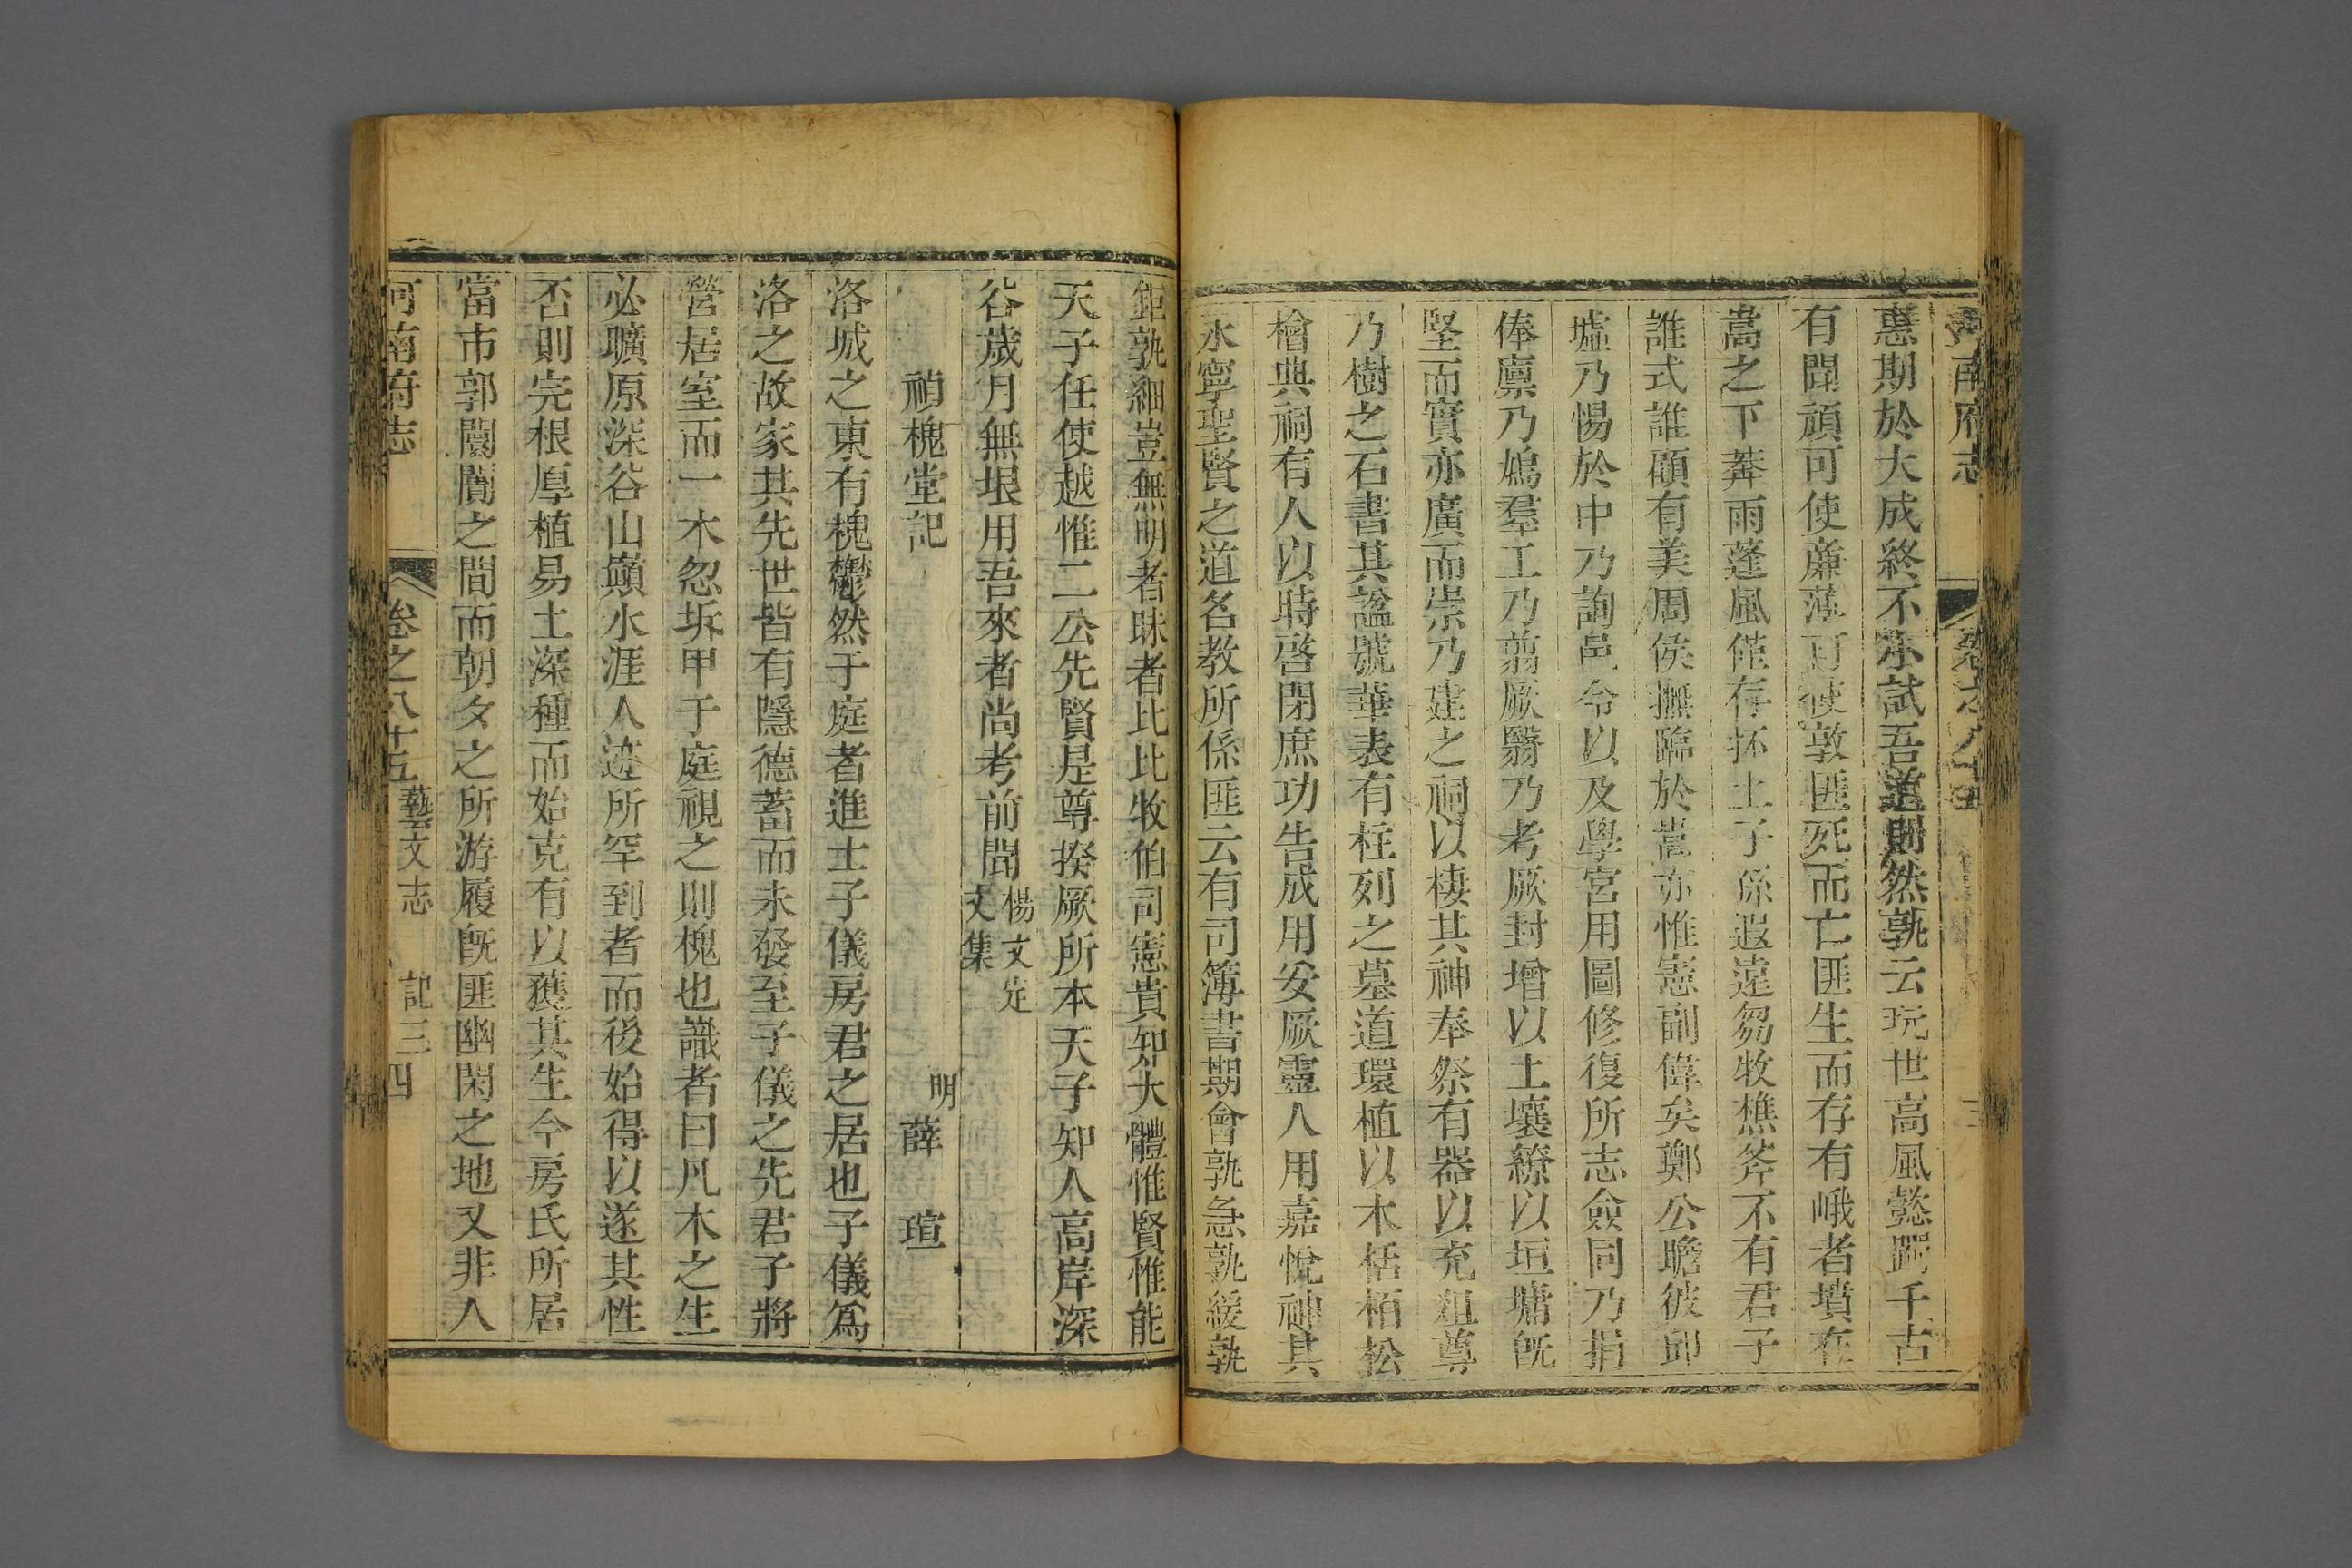 河南府志
卷之八十五
惠期於大成終不示試吾道則然孰云玩世高風懿躅千古
有聞頑可使廉薄可使敦匪死而亡匪生而存有峨者墳在
嵩之下莽雨蓬風僅存抔土子係遐遠芻牧樵斧不有君子
誰式誰顧有美周侯撫臨於嵩亦惟憲副偉矣鄭公瞻彼邱
墟乃惕於中乃詢邑令以及學宮用圖修復所志僉同乃捐
俸廩乃鳩羣工乃翦厥翳乃考厥封增以土壤繚以垣墉旣
堅而實亦廣而崇乃建之祠以棲其神奉祭有器以充俎尊
乃樹之石書其諡號華表有柱列之墓道環植以木栝栢松
檜典祠有人以時啓閉庶功告成用安厥靈人用嘉悅神其
永寧聖賢之道名教所係匪云有司簿書期會孰急孰緩孰
鉅孰細豈無明者昧者比比牧伯司憲貴知大體惟賢惟能
天子任使越惟二公先賢是尊揆厥所本天子知人高岸深
谷歲月無垠用吾來者尚考前聞楊文定文集
禎槐堂記
明薛瑄
洛城之東有槐鬱然于庭者進士子儀房君之居也子儀爲
洛之故家其先世皆有隱德蓄而未發至子儀之先君子將
營居室而一木忽坼甲于庭視之則槐也識者曰凡木之生
必曠原深谷山巔水涯人迹所罕到者而後始得以遂其性
否則完根厚植易土深種而始克有以獲其生今房氏所居
當市郭闤闠之間而朝夕之所游履旣匪幽閑之地又非人
河南府志
卷之八十五 藝文志 記三 四